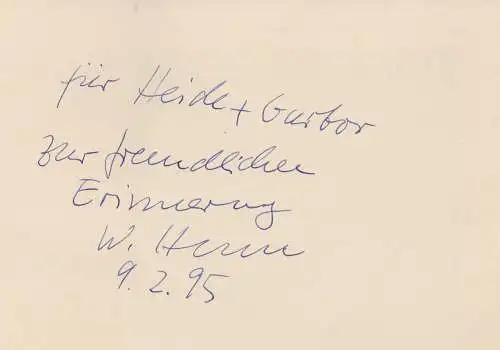 für Heide + Gabor
zur freundlichen
Erinnerung
W. Herm
9. 2. 95